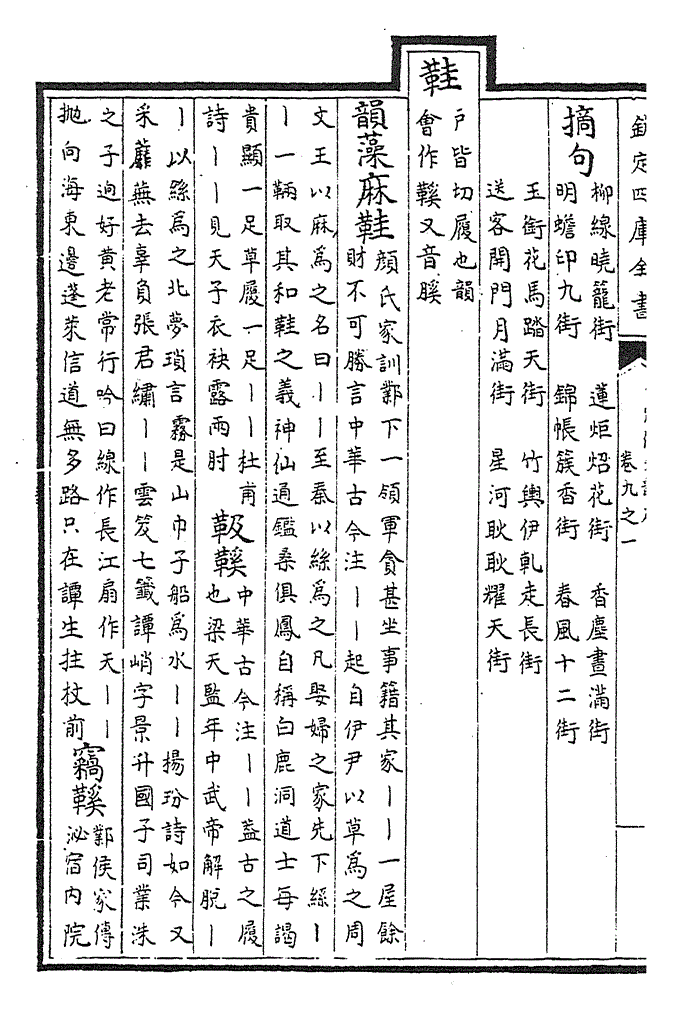 欽定四庫全書
卷九之一
摘句
柳線曉籠街　蓮炬炤花街　香塵晝滿街
明蟾印九街　錦帳簇香街　春風十二街
玉銜花馬踏天街　竹輿伊軋走長街
送客開門月滿街　星河耿耿耀天街
鞋
戶皆切履也韻
會作鞵又音膎
韻藻麻鞋
顔氏家訓鄴下一領軍貪甚坐事籍其家丨丨一屋餘
財不可勝言中華古今注丨丨起自伊尹以草為之周
文王以麻為之名曰丨丨至秦以絲為之凡娶婦之家先下絲丨
丨一輛取其和鞋之義神仙通鑑桑俱鳳自稱白鹿洞道士每謁
貴顯一足草履一足丨丨杜甫
詩丨丨見天子衣袂露兩肘
靸鞵
中華古今注丨丨蓋古之履
也梁天監年中武帝解脫丨
丨以絲為之北夢瑣言霧是山巾子船為水丨丨揚玢詩如今又
采蘼蕪去辜負張君繡丨丨雲笈七籤譚峭字景升國子司業洙
之子迥好黃老常行吟曰線作長江扇作天丨丨
拋向海東邊蓬萊信道無多路只在譚生拄杖前
竊鞵
鄴侯家傳
泌宿內院